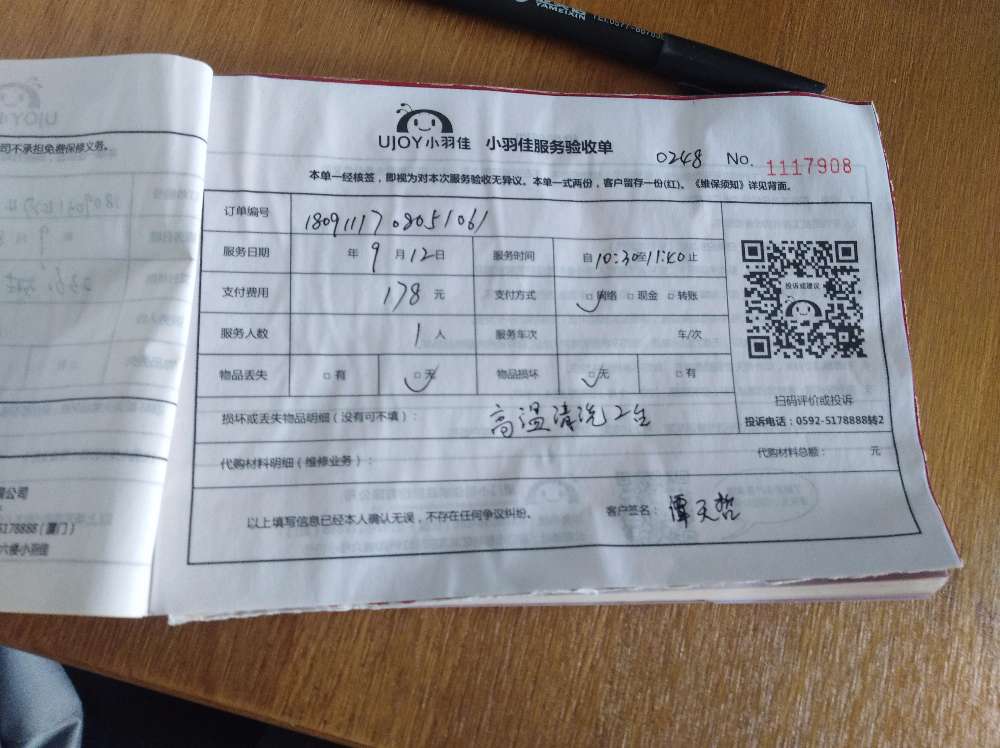 TAMEIXIN
UJOY小羽佳 小羽佳服务验收单
0248 No. 1117908
本单一经核签，即视为对本次服务验收无异议。本单一式两份，客户留存一份(红)。《维保须知》详见背面。
订单编号 18091117 08051061
服务日期 年 9 月 12 日 服务时间 自 10:30 至 11:40 止
支付费用 178 元 支付方式 □网络 □现金 □转账
服务人数 1 人 服务车次 车/次
物品丢失 □有 □无 物品损坏 □无 □有
投诉或建议
扫码评价或投诉
投诉电话：0592-5178888转2
损坏或丢失物品明细（没有可不填）： 高温清洗
代购材料明细（维修业务）： 代购材料总额： 元
以上填写信息已经本人确认无误，不存在任何争议纠纷。 客户签名： 谭天哲
司不承担免费保修义务。
限公司
5178888（厦门）
六楼小羽佳